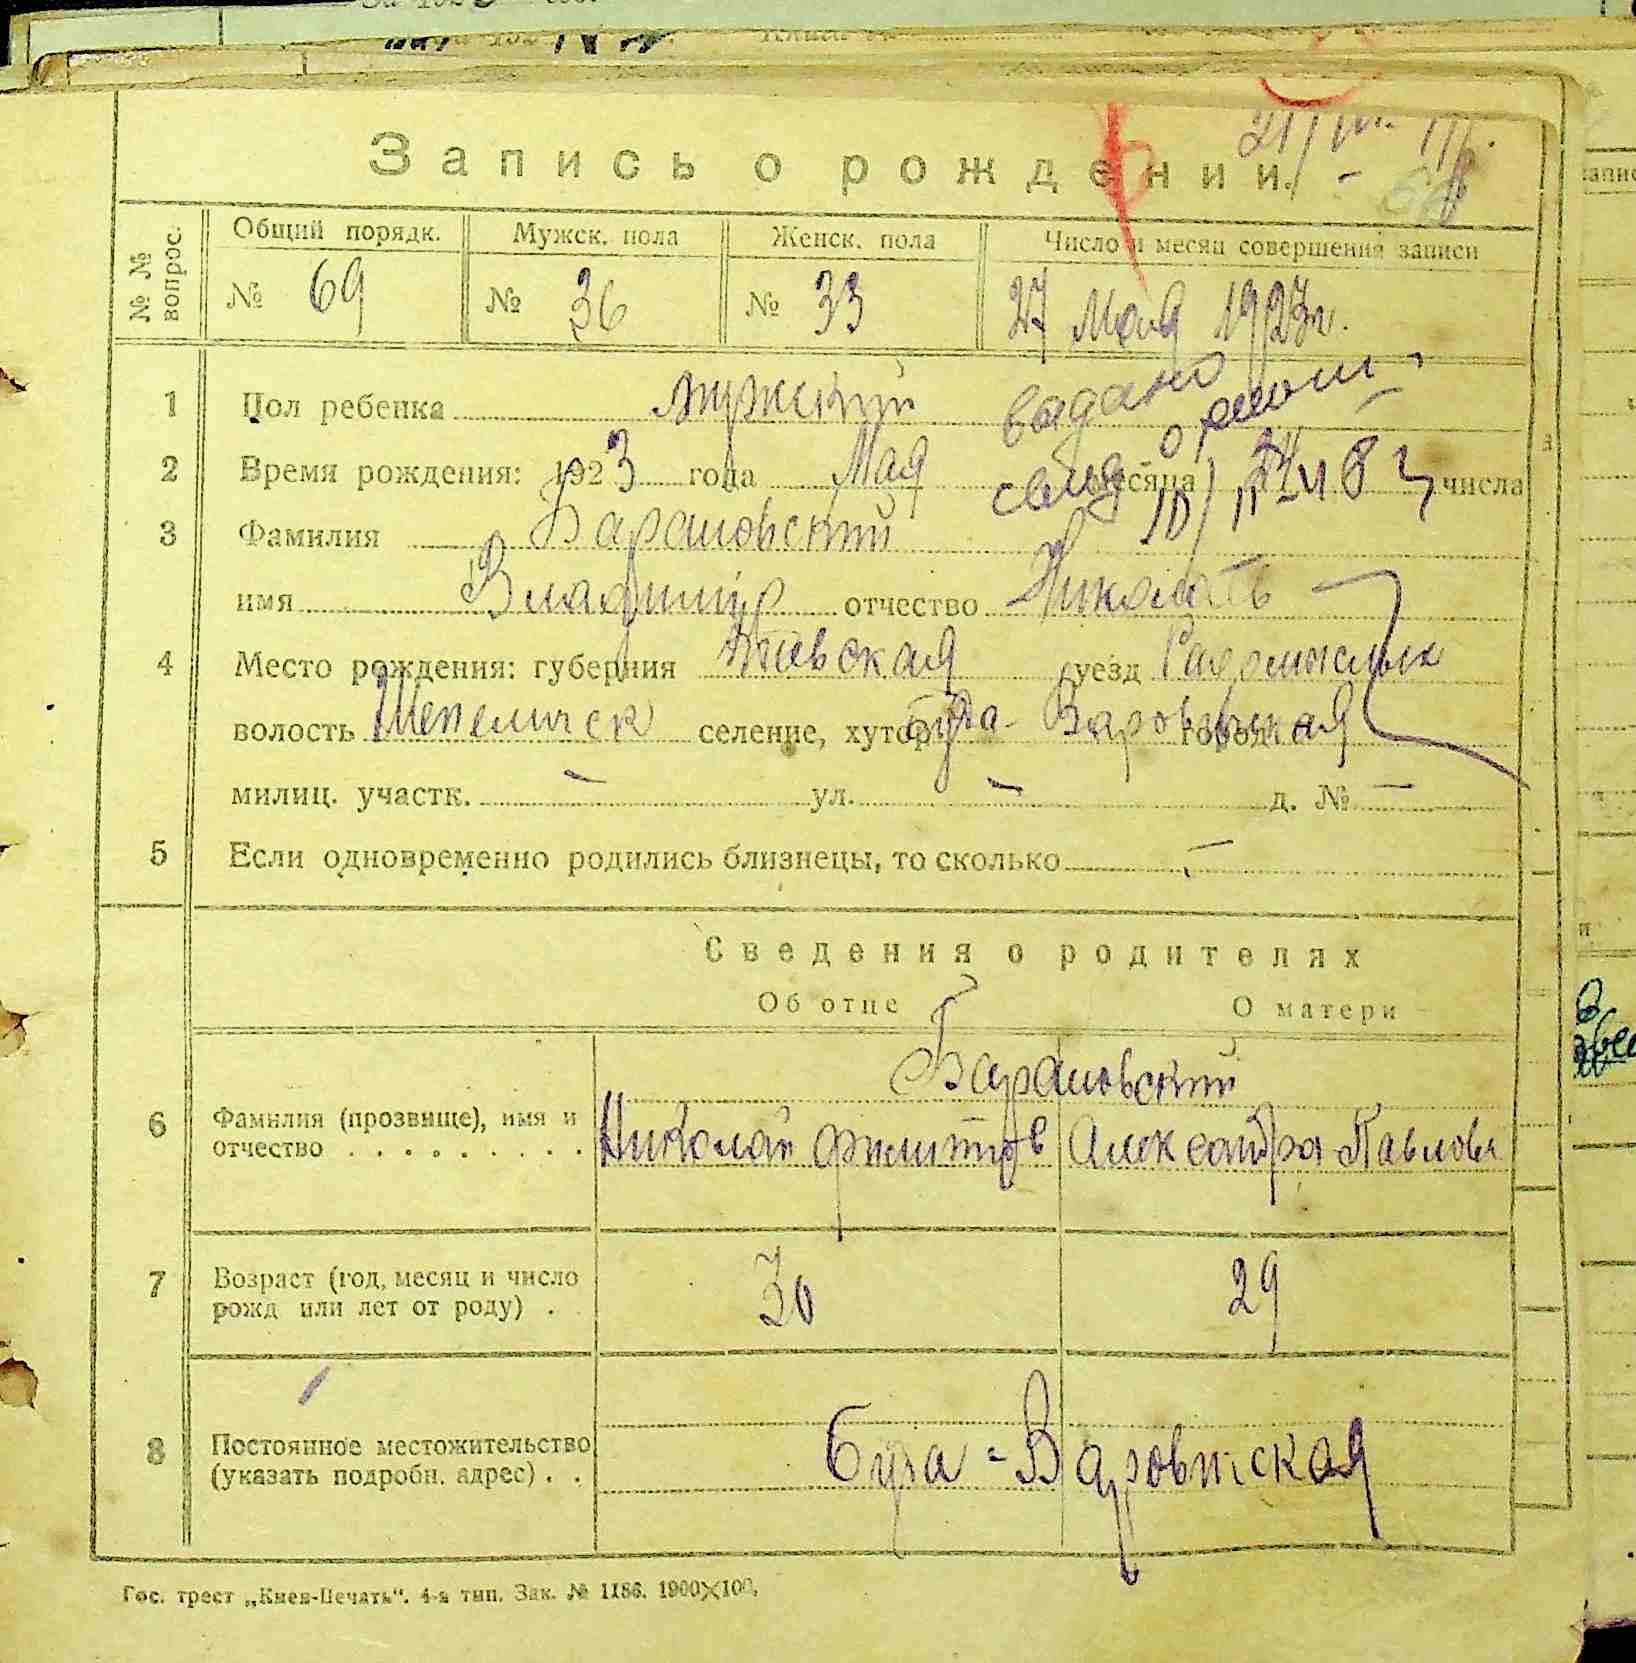 Запись о рождении.
№ № вопрос.
Общий порядк. Мужск. пола Женск. пола Число и месяц совершения записи
№ 69 № 36 № 33 27 Мая 1923 г.
1 Пол ребенка мужский
выдано
2 Время рождения: 1923 года Мая месяца 24 числа
свид. о рожд.
3 Фамилия Барановский
имя Владимир отчество Николать
4 Место рождения: губерния Киевская уезд Радомысльск
волость Шепеличск селение, хутор Буда-Варовская город
милиц. участк. — ул. — д. № —
5 Если одновременно родились близнецы, то сколько —
Сведения о родителях
Об отце О матери
Барановский
6 Фамилия (прозвище), имя и отчество Николай Филиппов Александра Павловн
7 Возраст (год, месяц и число рожд или лет от роду) . 30 29
8 Постоянное местожительство (указать подробн. адрес) . . Буда-Варовитская
Гос. трест „Киев-Печать“. 4-я тип. Зак. № 1186. 1900×100.